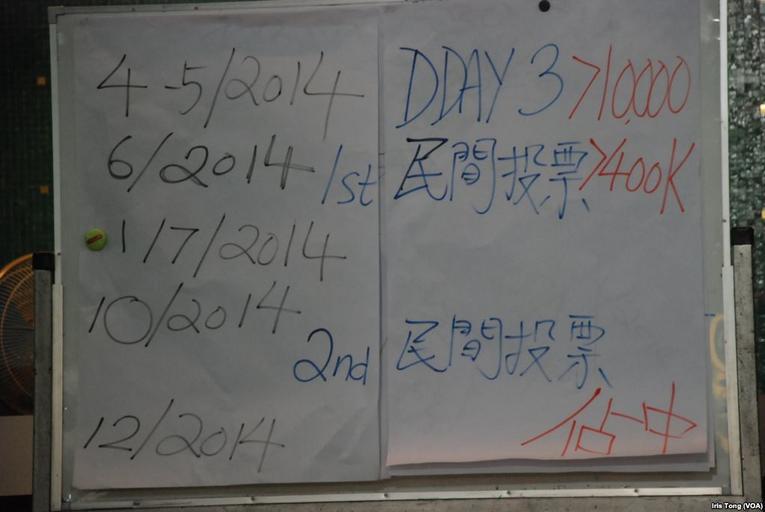 4-5/2014 DDAY 3 >10,000
6/2014 1st 民間投票 >400K
1/7/2014
10/2014
2nd 民間投票
佔中
12/2014
Iris Tong (VOA)